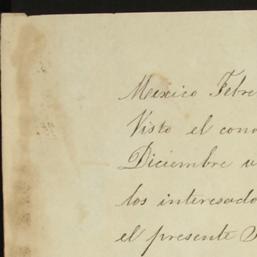 Mexico Febre
Visto el cono
Diciembre u
los interesado
el presente